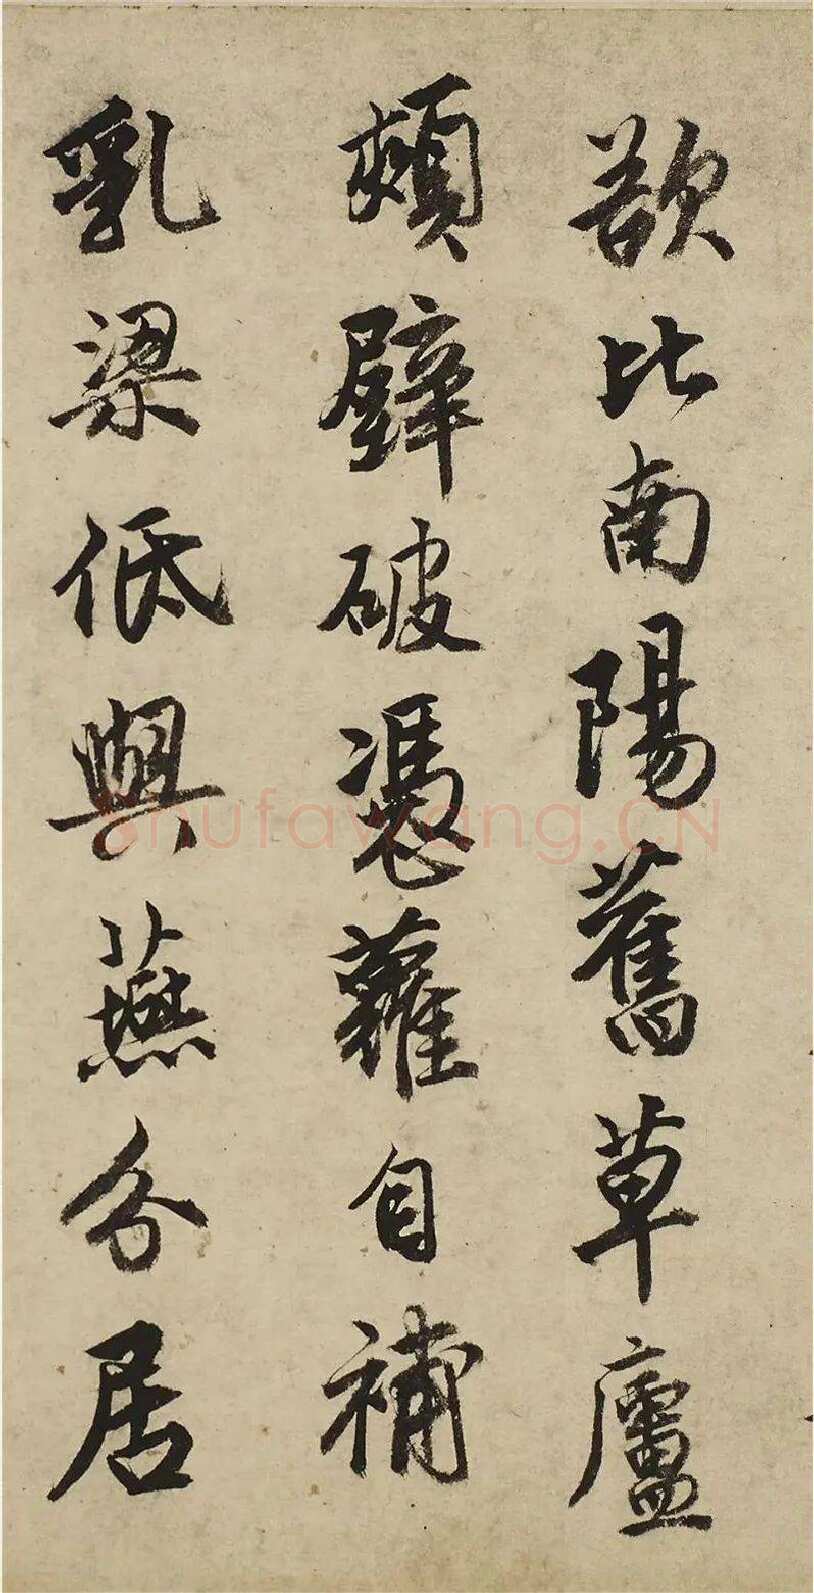 欲比南陽舊草廬
頹壁破憑蘿自補
乳梁低與燕分居
shufawang.CN